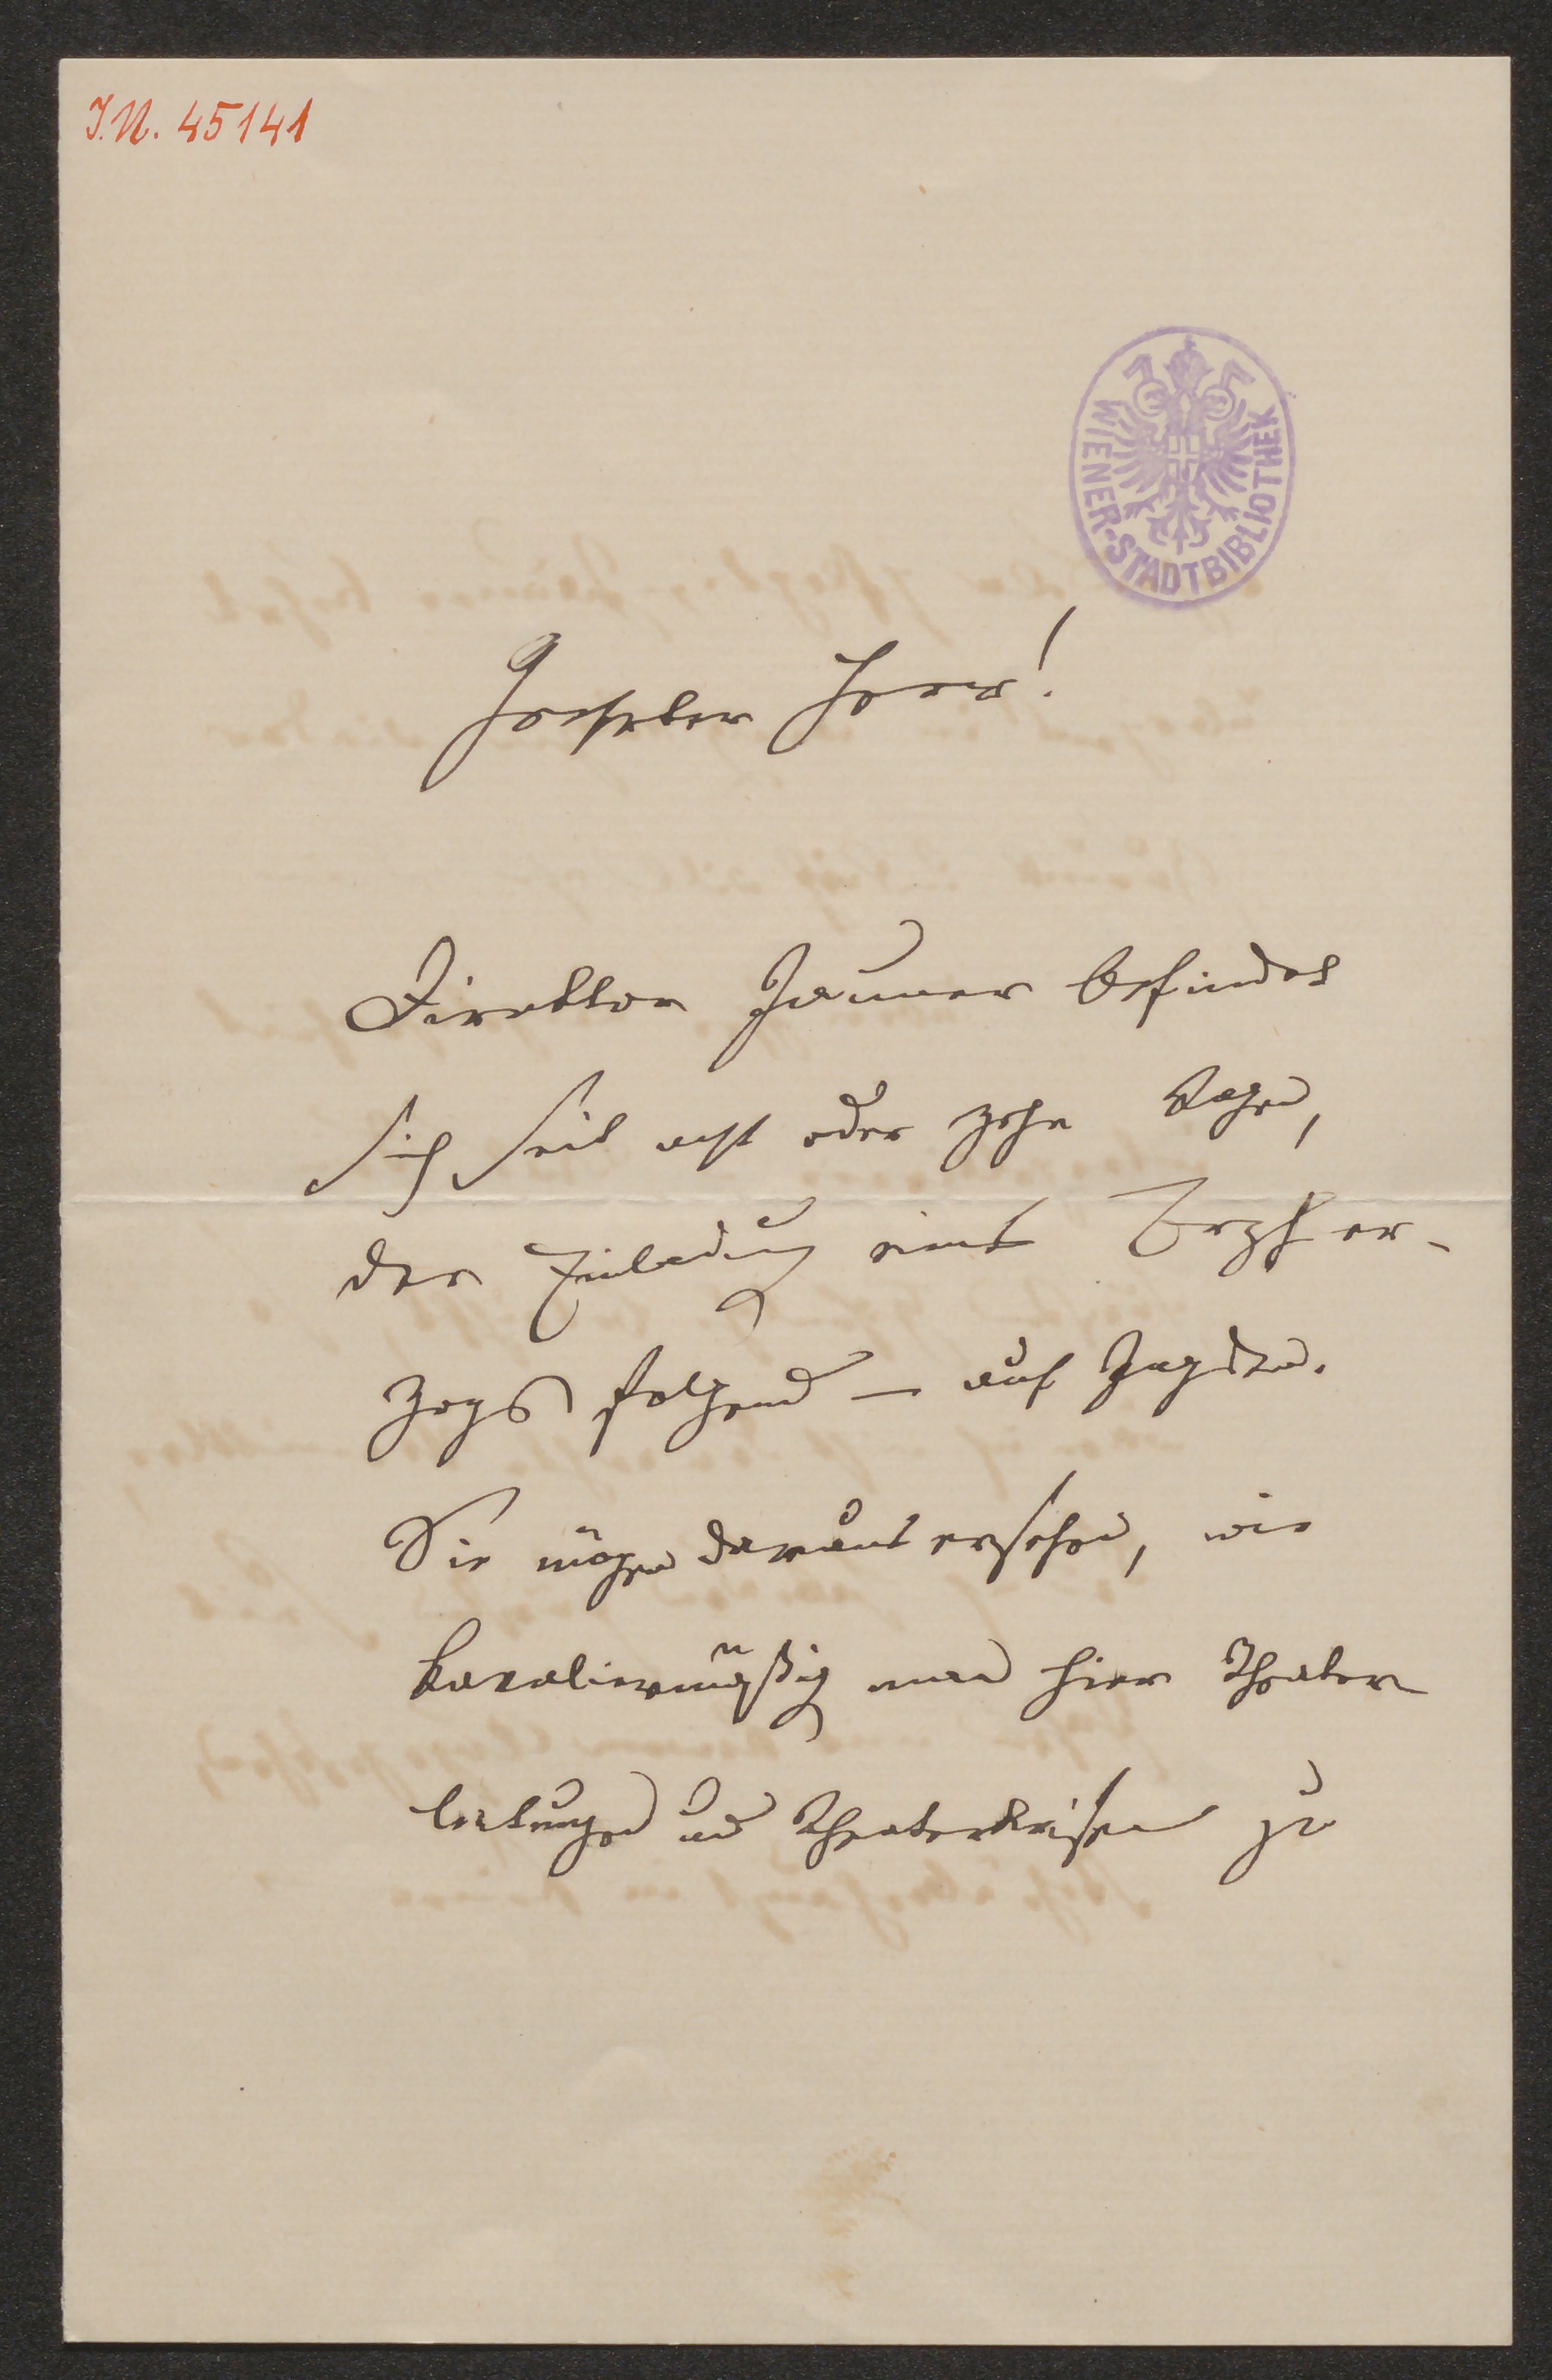 I.N. 45141
WIENER-STADTBIBLIOTHEK
Geehrter Herr!
Direktor Jauner befindet
sich seit acht oder zehn Tagen,
der Einladung eines Erzher-
zogs folgend – auf Jagden.
Sie mögen daraus ersehen, wie
kavaliermäßig man hier Theater
leitungen und Theaterkrisen zu